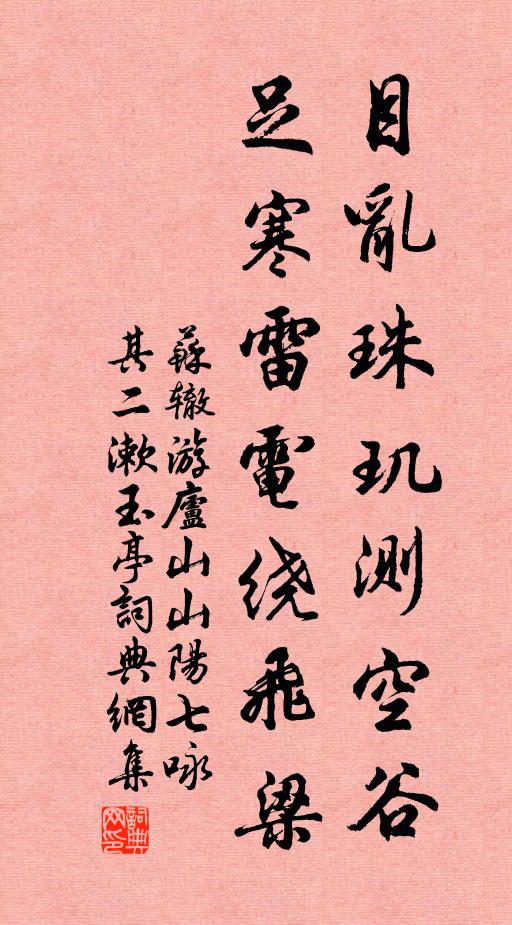 目亂珠玑測空谷
足寒雷電绕飛梁
蘇辙游廬山山陽七咏
其二漱玉亭詞典網集
詞典网印